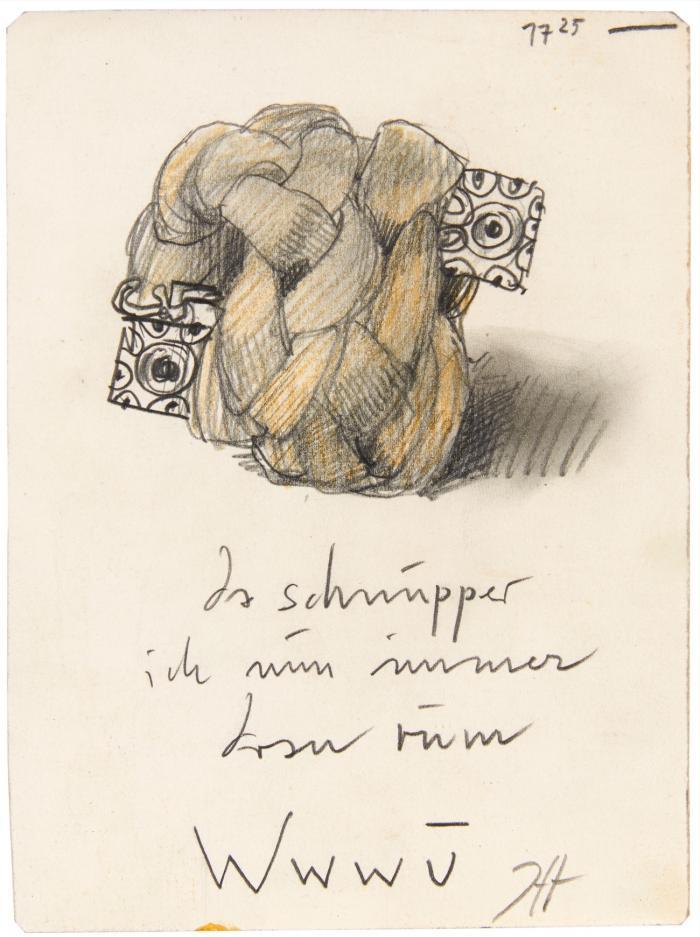 17 25
Da schnupper
ich nun immer
dran rum
Wwwu